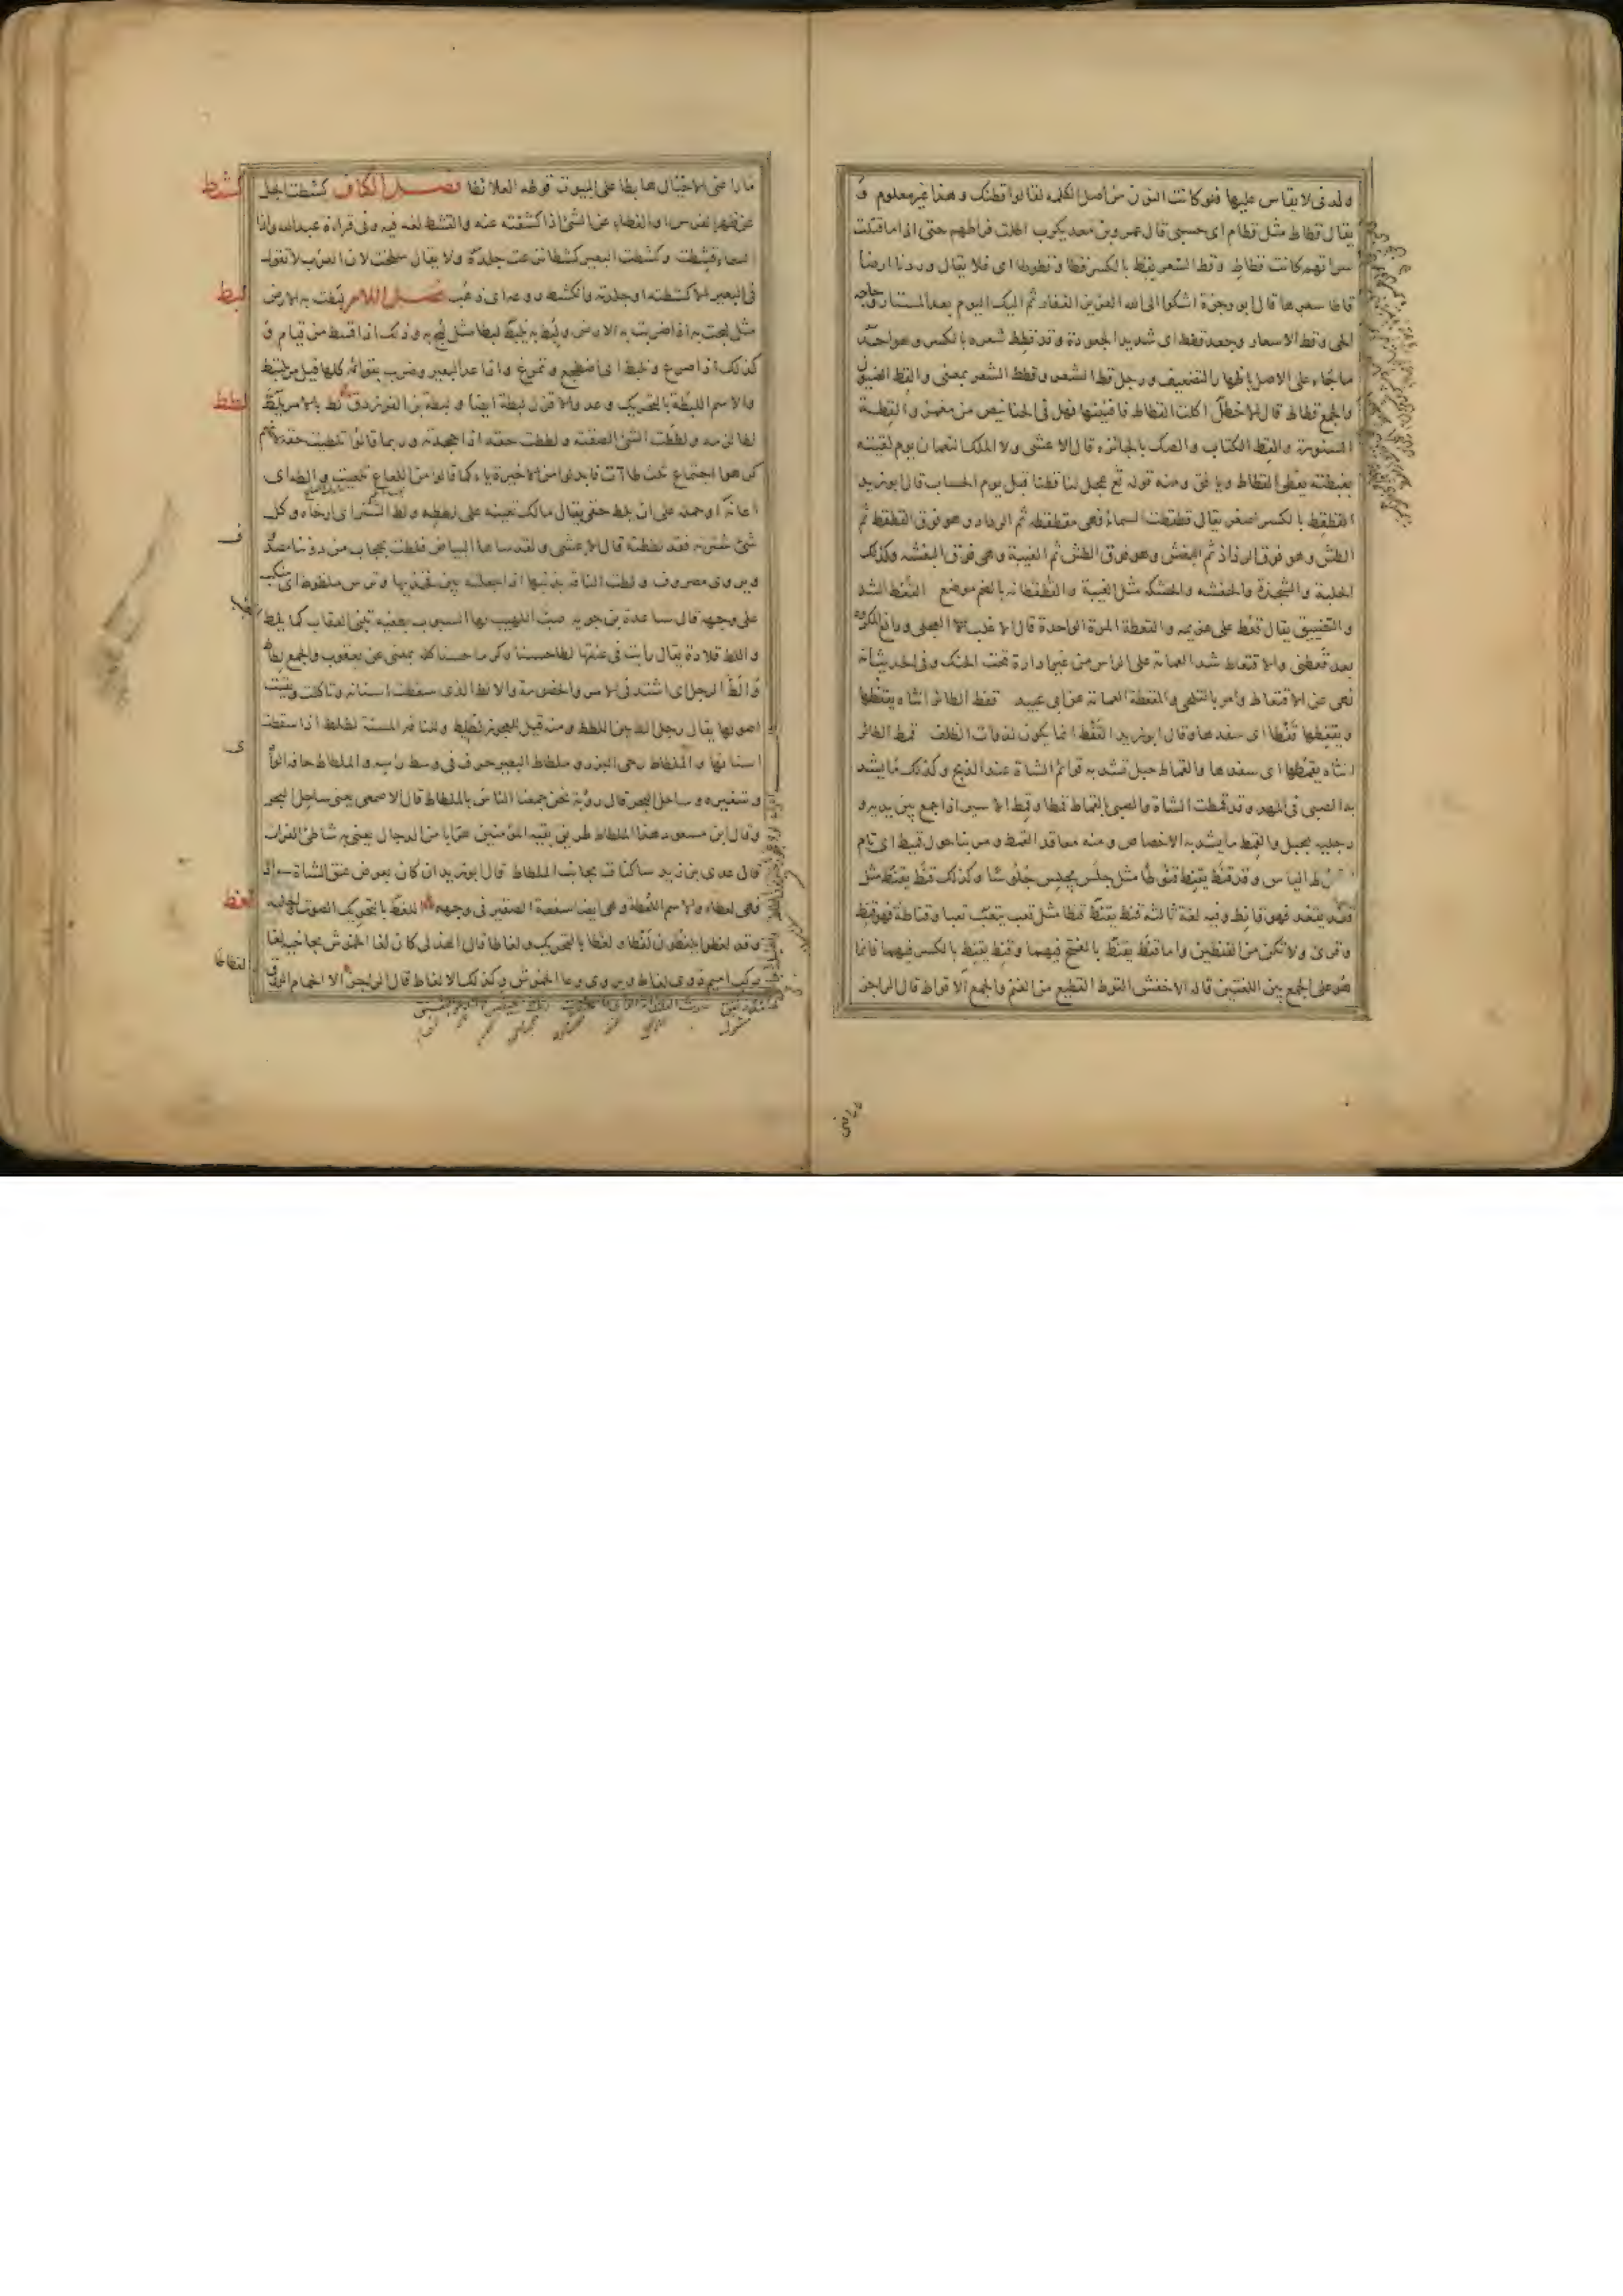 ولدنى لا يقاس عليها فلو كانت النون من أصل الكلمة لقالوا قطنك وهذا غير معلوم و
يقال قطاط مثل قطام اى حسبى قال عمرو بن معديكرب اطلت فراطهم حتى اذا ما قتلت
سراتهم كانت قطاط وقط السعر يقط بالكسر قطا وقطوطا اى غلا يقال وردنا ارضا
قاطا سعرها قال ابو وجزة اشكوا الى الله العزيز الغفار ثم اليك اليوم بعد المستار وحاجة
الحى وقط الاسعار وجعد قطط اى شديد الجعودة وقد قطط شعره بالكسر وهو احد
ما جاء على الاصل باظهار التضعيف ورجل قط الشعر وقطط الشعر بمعنى والقط الضيون
والجمع قطاط قال الاخطل اكلت القطاط فافنيتها فهل فى الخنانيص من مغمز والقطة
السنورة والقط الكتاب والصك بالجائزة قال الاعشى ولا الملك النعمان يوم لقيته
بغبطته يعطى القطاط ويأفق ومنه قوله تع عجل لنا قطنا قبل يوم الحساب قال ابو زيد
القطقط بالكسر اصغر يقال قطقطت السماء فهى مقطقطة ثم الرذاذ وهو فوق القطقط ثم
الطش وهو فوق الرذاذ ثم البغش وهو فوق الطش ثم الغبية وهى فوق البغشة وكذلك
الحلبة والشجذة والحفشة والحشكة مثل الغبية والقطقطانة بالضم موضع القعط الشد
والتضييق يقال قعط على غريمه والقعطة المرة الواحدة قال الاغلب العجلى ودافع المكروه
بعد قعطنى والاقتعاط شد العمامة على الراس من غير ادارة تحت الحنك وفى الحديث انه
نهى عن الاقتعاط وامر بالتلحى والمقعطة العمامة عن ابى عبيد قفط الطائر انثاه يقفطها
ويقفطها قفطا اى سفدها وقال ابو زيد القفط انما يكون لذوات الظلف قمط الطائر
انثاه يقمطها اى سفدها والقماط حبل تشد به قوائم الشاة عند الذبح وكذلك ما يشد
به الصبى فى المهد وقد قمطت الشاة والصبى بالقماط قمطا وقمط الاسير اذا جمع بين يديه و
رجليه بحبل والقمط ما يشد به الاخصاص ومنه معاقد القمط ومر بنا حول قميط اى تام
ط الياس وقد قنط يقنط قنوطا مثل جلس يجلس جلوسا وكذلك قنط يقنط مثل
قعد يقعد فهو قانط وفيه لغة ثالثة قنط يقنط قنطا مثل تعب يتعب تعبا وقناطة فهو قنط
وقرئ ولا تكن من القنطين واما قنط يقنط بالفتح فيهما وقنط يقنط بالكسر فيهما فانما
هو على الجمع بين اللغتين قاله الاخفش القوط القطيع من الغنم والجمع الاقواط قال الراجز
ما راعنى الا خيال هابطا على البيوت قوطه العلابطا فصل الكاف كشطت الجل
عن ظهر الفرس والغطاء عن الشئ اذا كشفته عنه والقشط لغة فيه وفى قراءة عبد الله واذا
السماء قشطت وكشطت البعير كشطا نزعت جلده ولا يقال سلخت لان العرب لا تقول
فى البعير الا كشطته او جلدته وانكشط روعه اى ذهب فصل اللام لبطت به الارض
مثل لبجت به اذا ضربت به الارض ولبط به يلبط لبطا مثل لبج به وذلك اذا سقط من قيام و
كذلك اذا صرع وتلبط اى اضطجع وتمرغ واذا عدا البعير وضرب بقوائمه كلها قيل مر يلتبط
والاسم اللبطة بالتحريك وعدو الاقزل لبطة ايضا ولبطة بن الفرزدق لط بالامر يلط
لطا لزمه ولططت الشئ الصقته ولططت حقه اذا جحدته وربما قالوا تلطيت حقه لانهم
كرهوا اجتماع ثلث طاآت فابدلوا من الاخيرة ياء كما قالوا من اللعاع تلعيت والطه اى
اعانه او حمله على ان يلط حقى يقال مالك تعينه على لططه ولط الستر اى ارخاه وكل
شئ سترته فقد لططته قال الاعشى ولقد ساءها البياض فلطت بحجاب من دوننا مصدوف
ويروى مصروف ولطت الناقة بذنبها اذا جعلته بين فخذيها وترس ملطوط اى منكب
على وجهه قال ساعدة بن جوية صب اللهيف لها السبوب بطغية تنبى العقاب كما يلط
واللط قلادة يقال رأيت فى عنقها لطا حسنا وكرما حسنا كله بمعنى عن يعقوب والجمع لطاط
والط الرجل اى اشتد فى الامر والخصومة والالط الذى سقطت اسنانه وتأكلت وبقيت
اصولها يقال رجل الط بين اللطط ومنه قيل للعجوز لطلط وللناقة المسنة لطلط اذا سقطت
اسنانها والملطاط رحى البزر وملطاط البعير حرف فى وسط راسه والملطاط حافة الوا
وشفيره وساحل البحر قال رؤبة نحن جمعنا الناس بالملطاط قال الاصمعى يعنى ساحل البحر
وقال ابن مسعود هذا الملطاط طريق بقية المؤمنين هرابا من الدجال يعنى به شاطئ الفرات
قال عدى بن زيد ساكنات بجانب الملطاط قال ابو زيد ان كان بعرض عنق الشاة سواد
فهى لعطاء والاسم اللعطة وهى ايضا سفعة الصقر فى وجهه اللغط بالتحريك الصوت والجلبة
وقد لغطوا يلغطون لغطا ولغطا بالتحريك ولغاطا قال الهذلى كان لغا الخموش بجانبيه لغا
ركب اميم ذوى لغاط ويروى وعا الخموش وكذلك الالغاط قال الراجز الا الحمام الورق
كشط
لبط
لطط
لغط